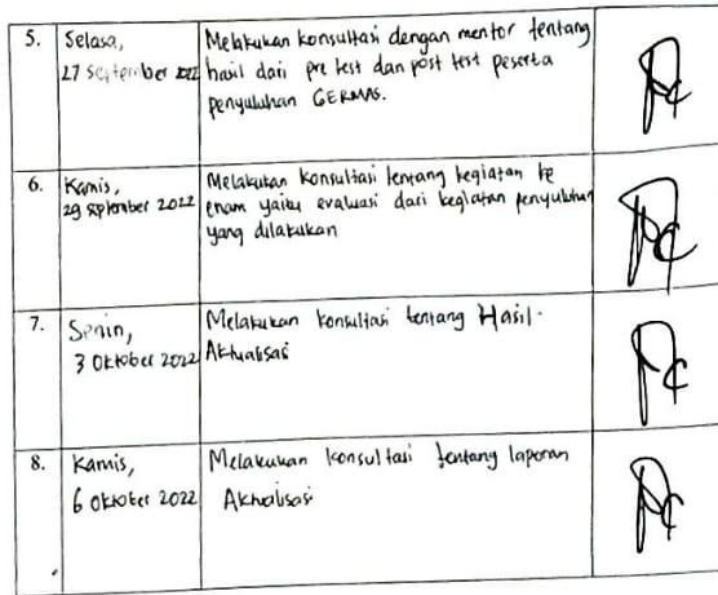 5. Selasa,
27 September 2022
Melakukan konsultasi dengan mentor tentang
hasil dari pre test dan post test peserta
penyuluhan GERMAS.
6. Kamis,
29 September 2022
Melakukan konsultasi tentang kegiatan ke
enam yaitu evaluasi dari kegiatan penyuluhan
yang dilakukan
7. Senin,
3 Oktober 2022
Melakukan konsultasi tentang Hasil
Aktualisasi
8. Kamis,
6 Oktober 2022
Melakukan konsultasi tentang laporan
Aktualisasi